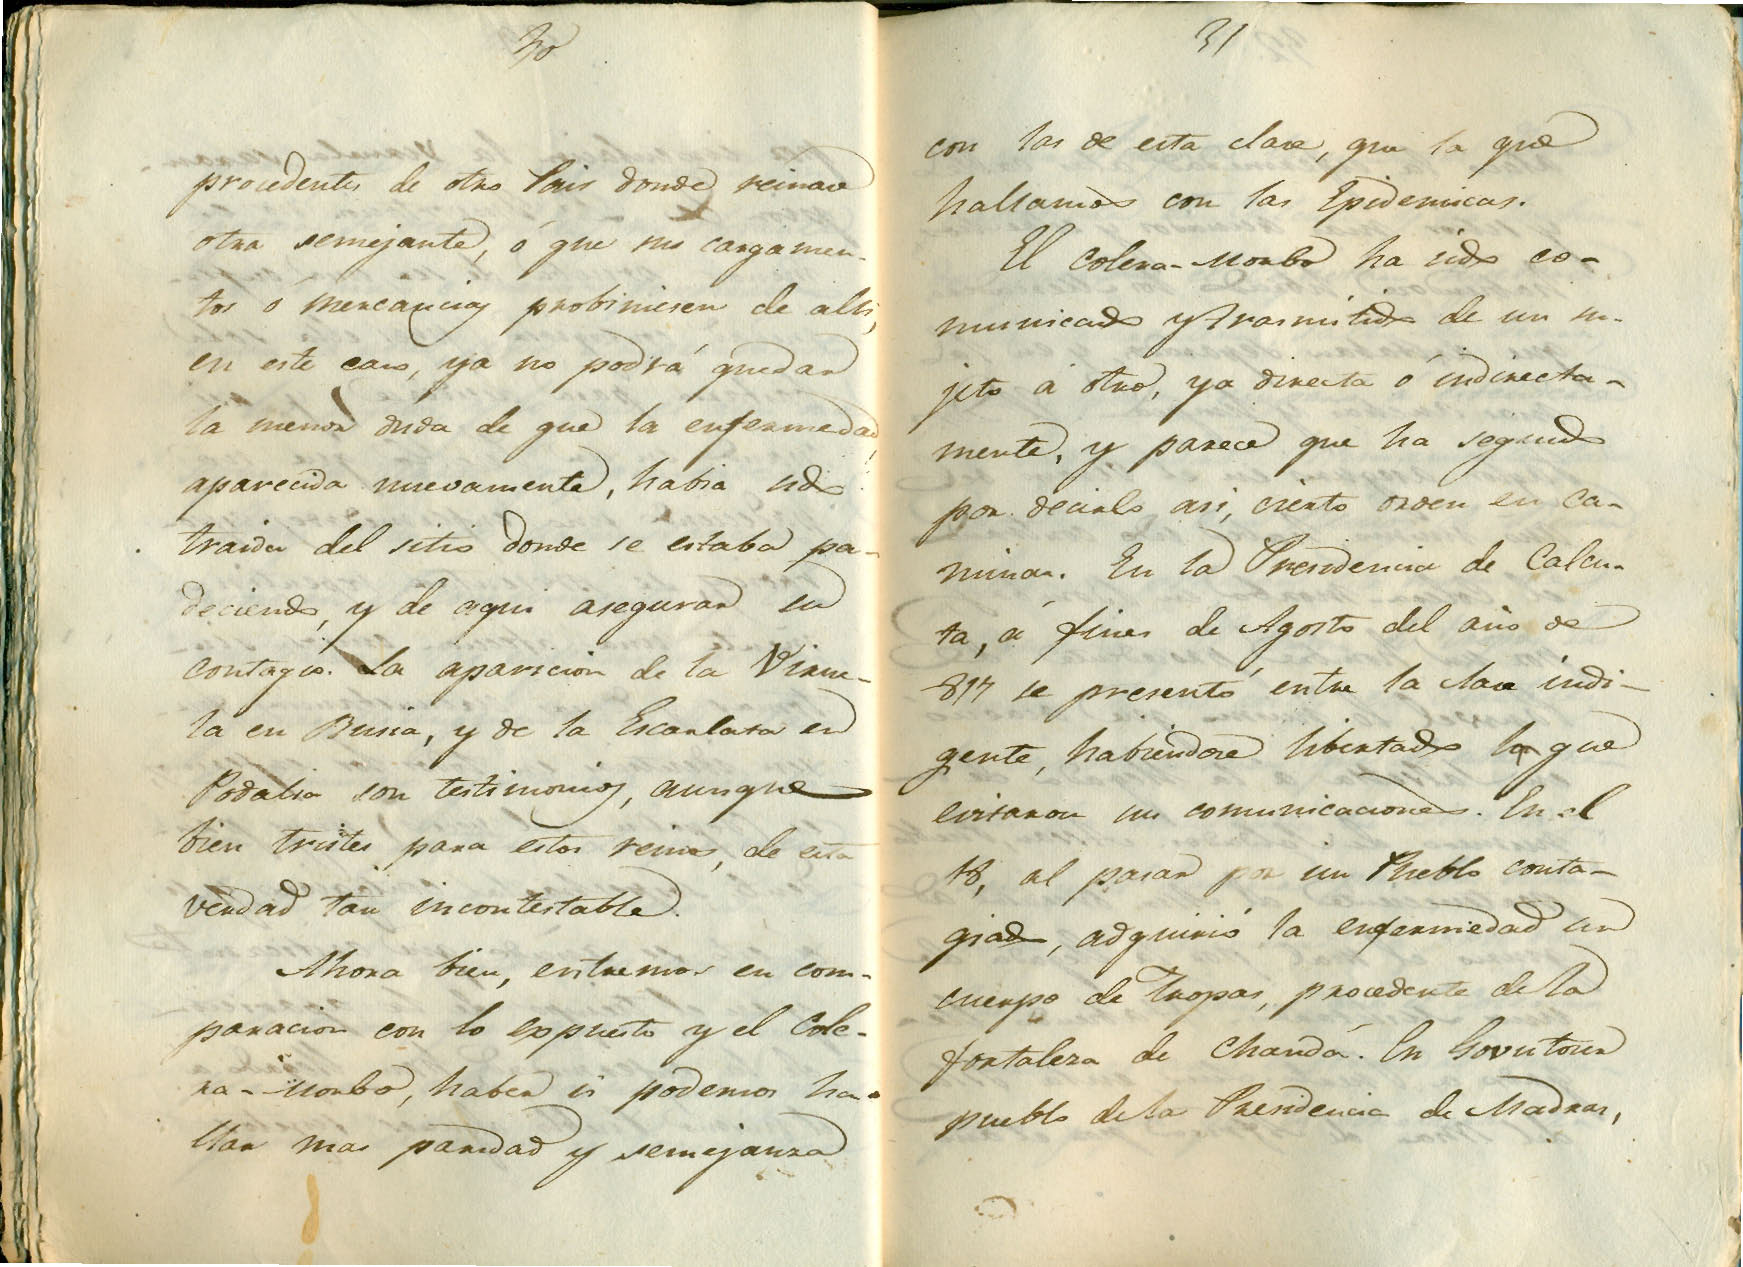 30
procedentes de otro Pais donde reinase
otra semejante, ó que sus cargamen-
tos ó mercancias probiniesen de alli,
en este caso, ya no podrá quedar
la menor duda de que la enfermedad
aparecida nuevamente, habia sido
traida del sitio donde se estaba pa-
deciendo, y de aqui asegurar su
contagio. La aparicion de la Virue-
la en Rusia, y de la Escarlata en
Podalia son testimonios, aunque
bien tristes para estos reinos, de esta
verdad tan incontestable.
Ahora bien, entremos en com-
paracion con lo expuesto y el Cole-
ra-Morbo, haber si podemos ha-
llar mas paridad y semejanza
31
con las de esta clase, que la que
hallamos con las Epidemicas.
El Colera-Morbo ha sido co-
municado y trasmitido de un su-
jeto á otro, ya directa ó indirecta-
mente, y parece que ha seguido
por decirlo asi, cierto orden en ca-
minar. En la Presidencia de Calcu-
ta, á fines de Agosto del año de
817 se presentó entre la clase indi-
gente, habiendose libertado los que
evitaron sus comunicaciones. En el
18, al pasar por un Pueblo conta-
giado, adquirió la enfermedad un
cuerpo de tropas, procedente de la
fortaleza de Chandá. En
pueblo de la Presidencia de Madras,